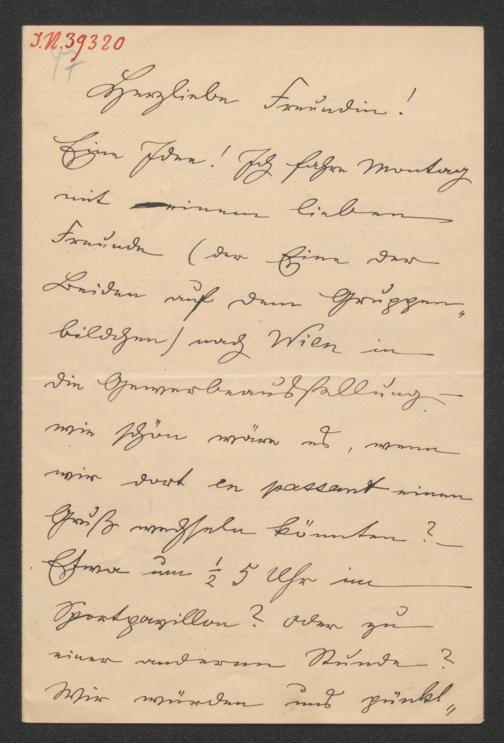 I.N. 39320
Herzliebe Freundin!
Eine Idee! Ich fahre Montag
mit einem lieben
Freunde (der Eine der
Beiden auf dem Gruppen„
bildchen) nach Wien in
die Gewerbeausstellung –
wie schön wäre es, wenn
wir dort en passant einen
Gruß wechseln könnten? –
Etwa um ½ 5 Uhr im
Sportpavillon? oder zu
einer anderen Stunde?
Wir würden uns pünkt„